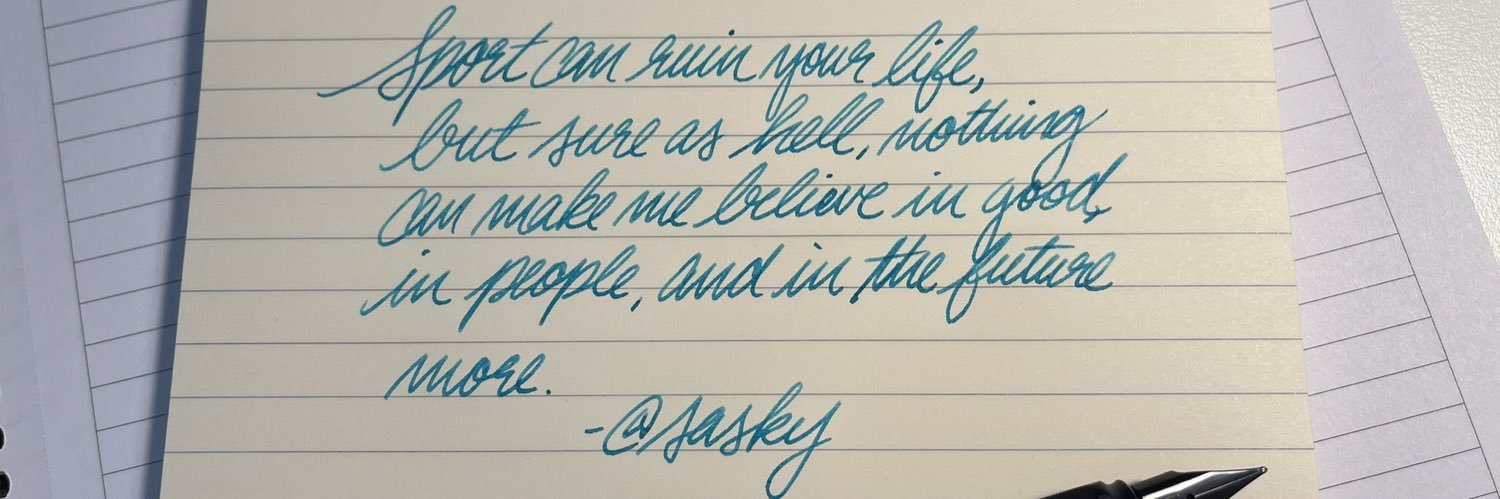 Sport can ruin your life,
but sure as hell, nothing
can make me believe in good,
in people, and in the future
more.
-@sasky